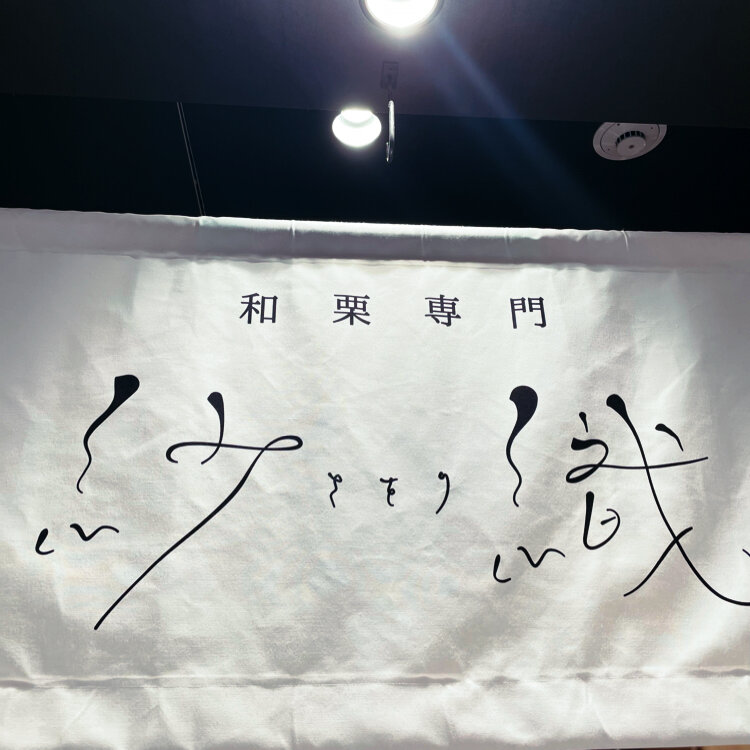 和栗専門
紗さをり織